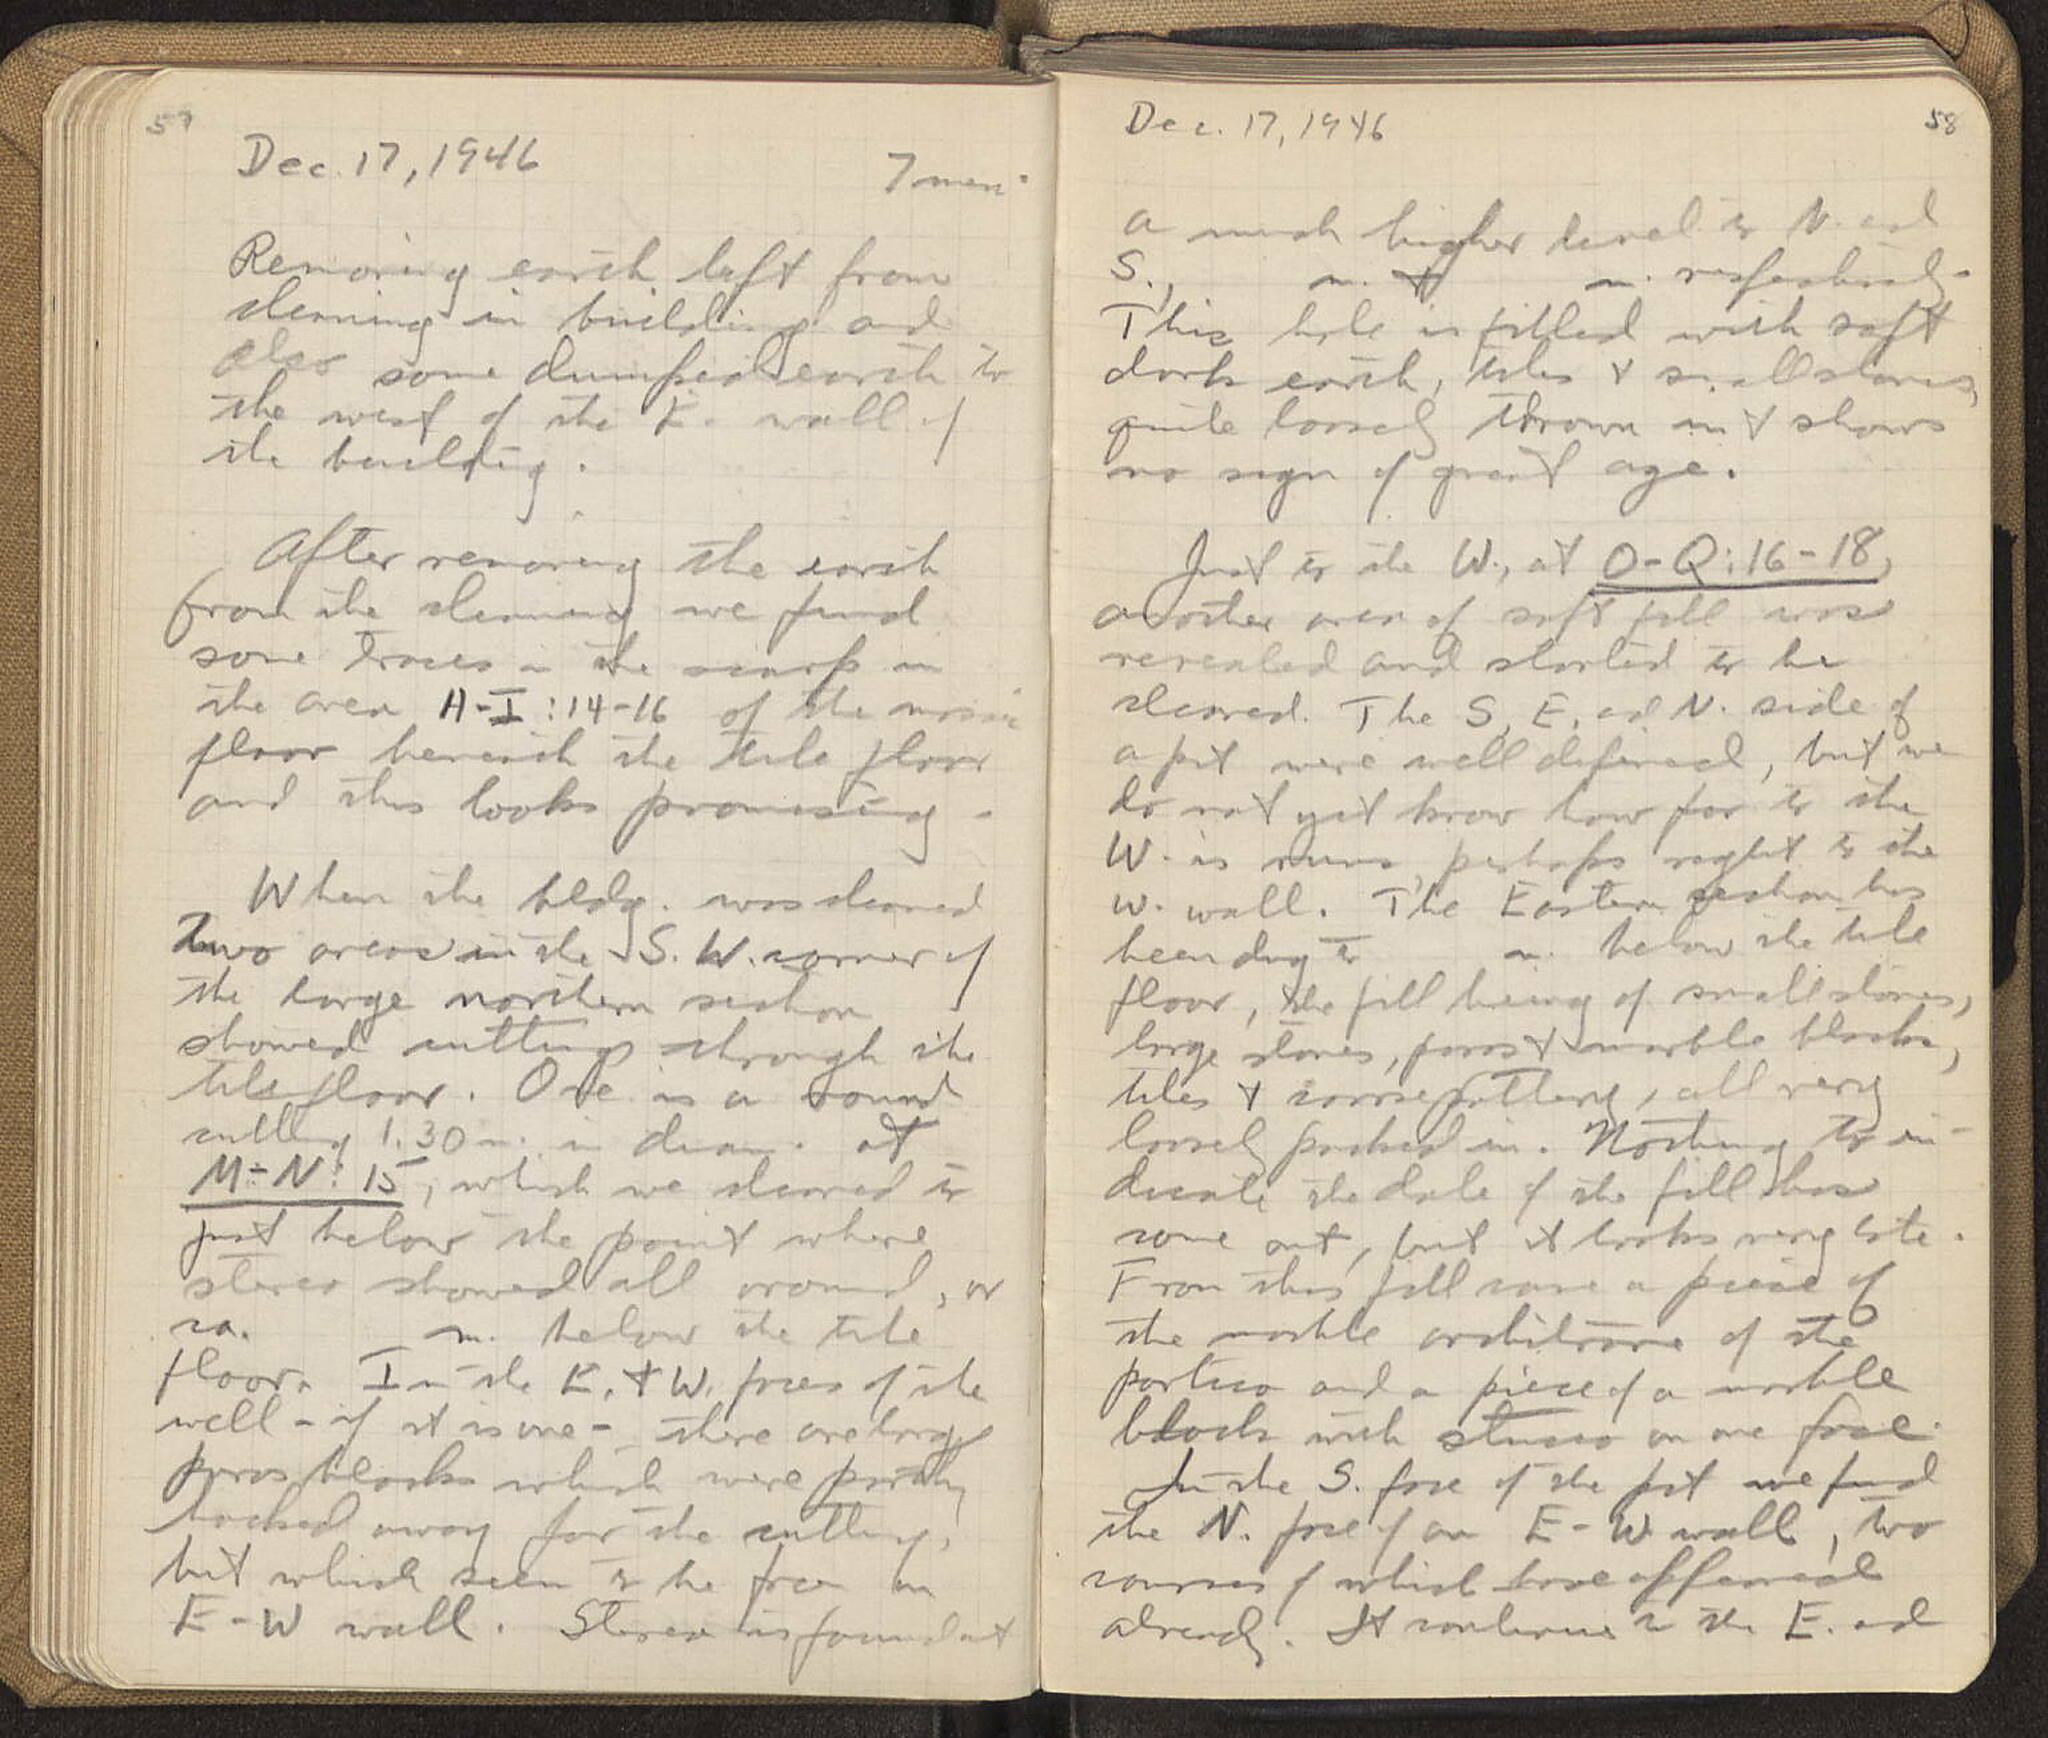 57
Dec. 17, 1946
7 men.
Removing earth left from
cleaning in building and
also some dumped earth to
the west of the E. wall of
the building.
After removing the earth
from the cleaning we found
some traces in the scarp in
the area H-I:14-16 of the mosaic
floor beneath the tile floor
and this looks promising.
When the bldg. was cleared
two areas in the S.W. corner of
the large northern section
showed cuttings through the
tile floor. One is a round
cutting 1.30 m. in diam. at
M-N:15, which we cleared to
just below the point where
stereo showed all around, or
ca. m. below the tile
floor. In the E. + W. faces of the
well - if it is one - there are large
poros blocks which were partly
hacked away for the cutting,
but which seem to be from an
E-W wall. Stereo is found at
Dec. 17, 1946
58
a much higher level to N. and
S., m. + m. respectively.
This hole is filled with soft
dark earth, tiles + small stones,
quite loosely thrown in + shows
no sign of great age.
Just to the W., at O-Q:16-18,
another area of soft fill was
revealed and started to be
cleared. The S, E, and N. side of
a pit were well defined, but we
do not yet know how far to the
W. is runs, perhaps right to the
W. wall. The Eastern section has
been dug to m. below the tile
floor, the fill being of small stones,
large stones, poros + marble blocks,
tiles + coarse pottery, all very
loosely packed in. Nothing to in-
dicate the date of the fill has
come out, but it looks very late.
From this fill came a piece of
the marble architrave of the
portico and a piece of a marble
block with stucco on one face.
In the S. face of the pit we find
the N. face of an E-W wall, two
courses of which have appeared
already. It continues to the E. and